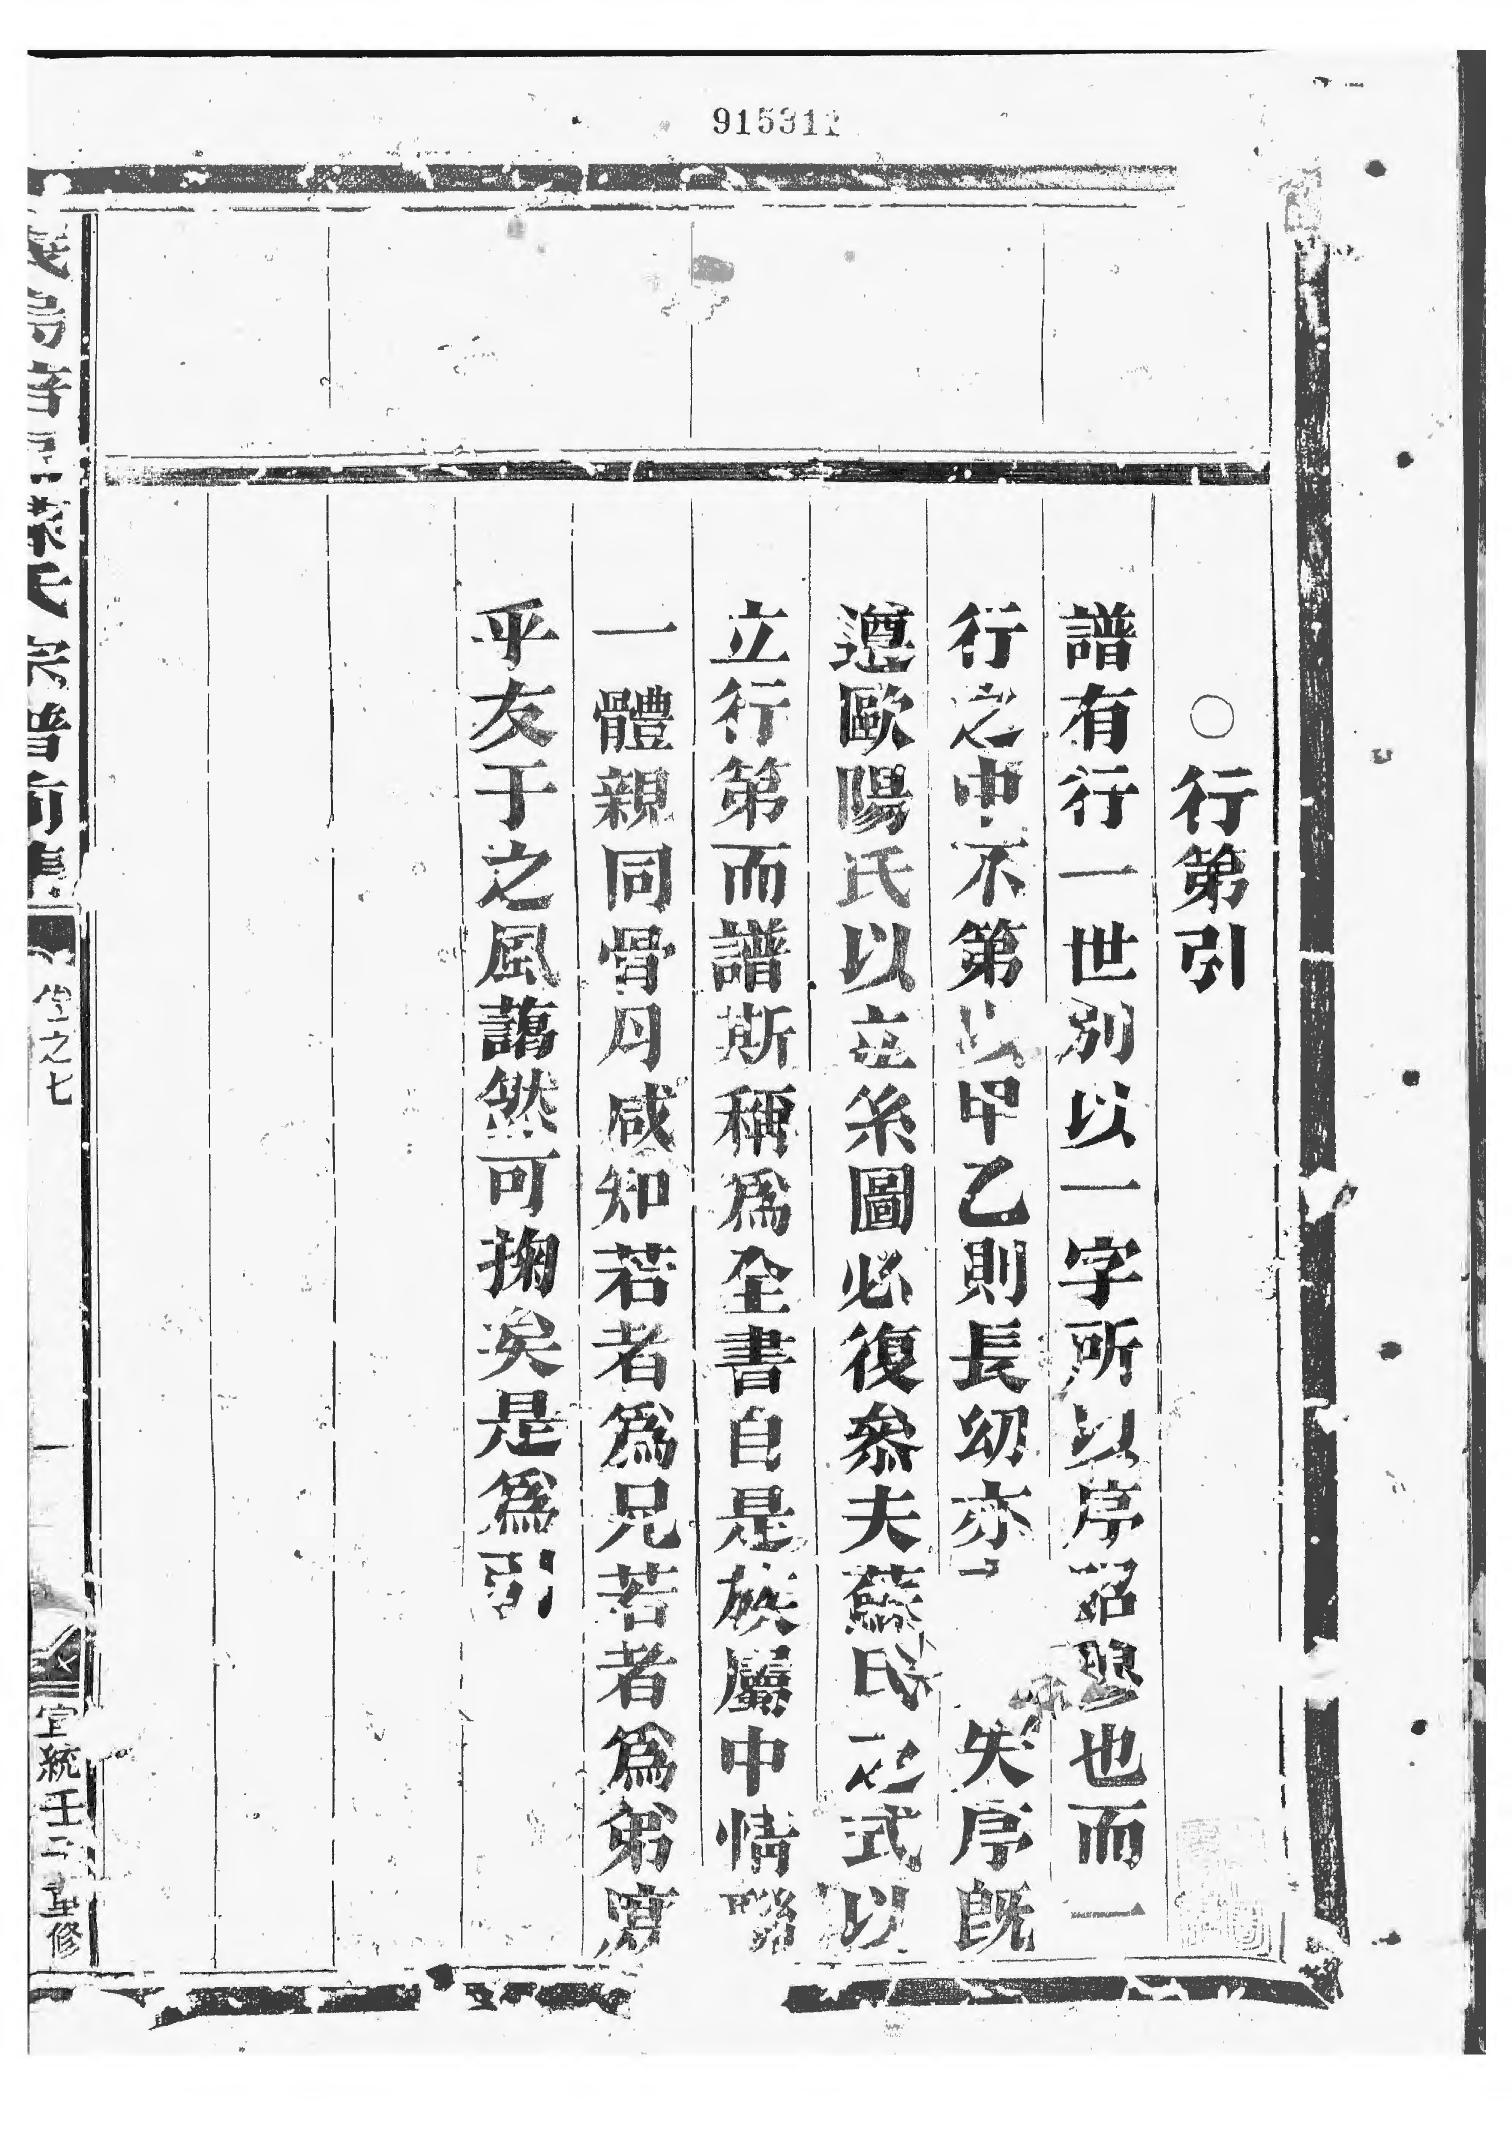 915312
○行第引
譜有行一世別以一字所以序昭穆也而一
行之中不第以甲乙則長幼亦失序旣
遵歐陽氏以立糸圖必復叅夫蘇氏之式以
立行第而譜斯稱爲全書自是族屬中情聯
一體親同骨月咸知若者爲兄若者爲弟庶
乎友于之風藹然可掬矣是爲引
氏宗譜前
卷之七
一
宣統壬子重修